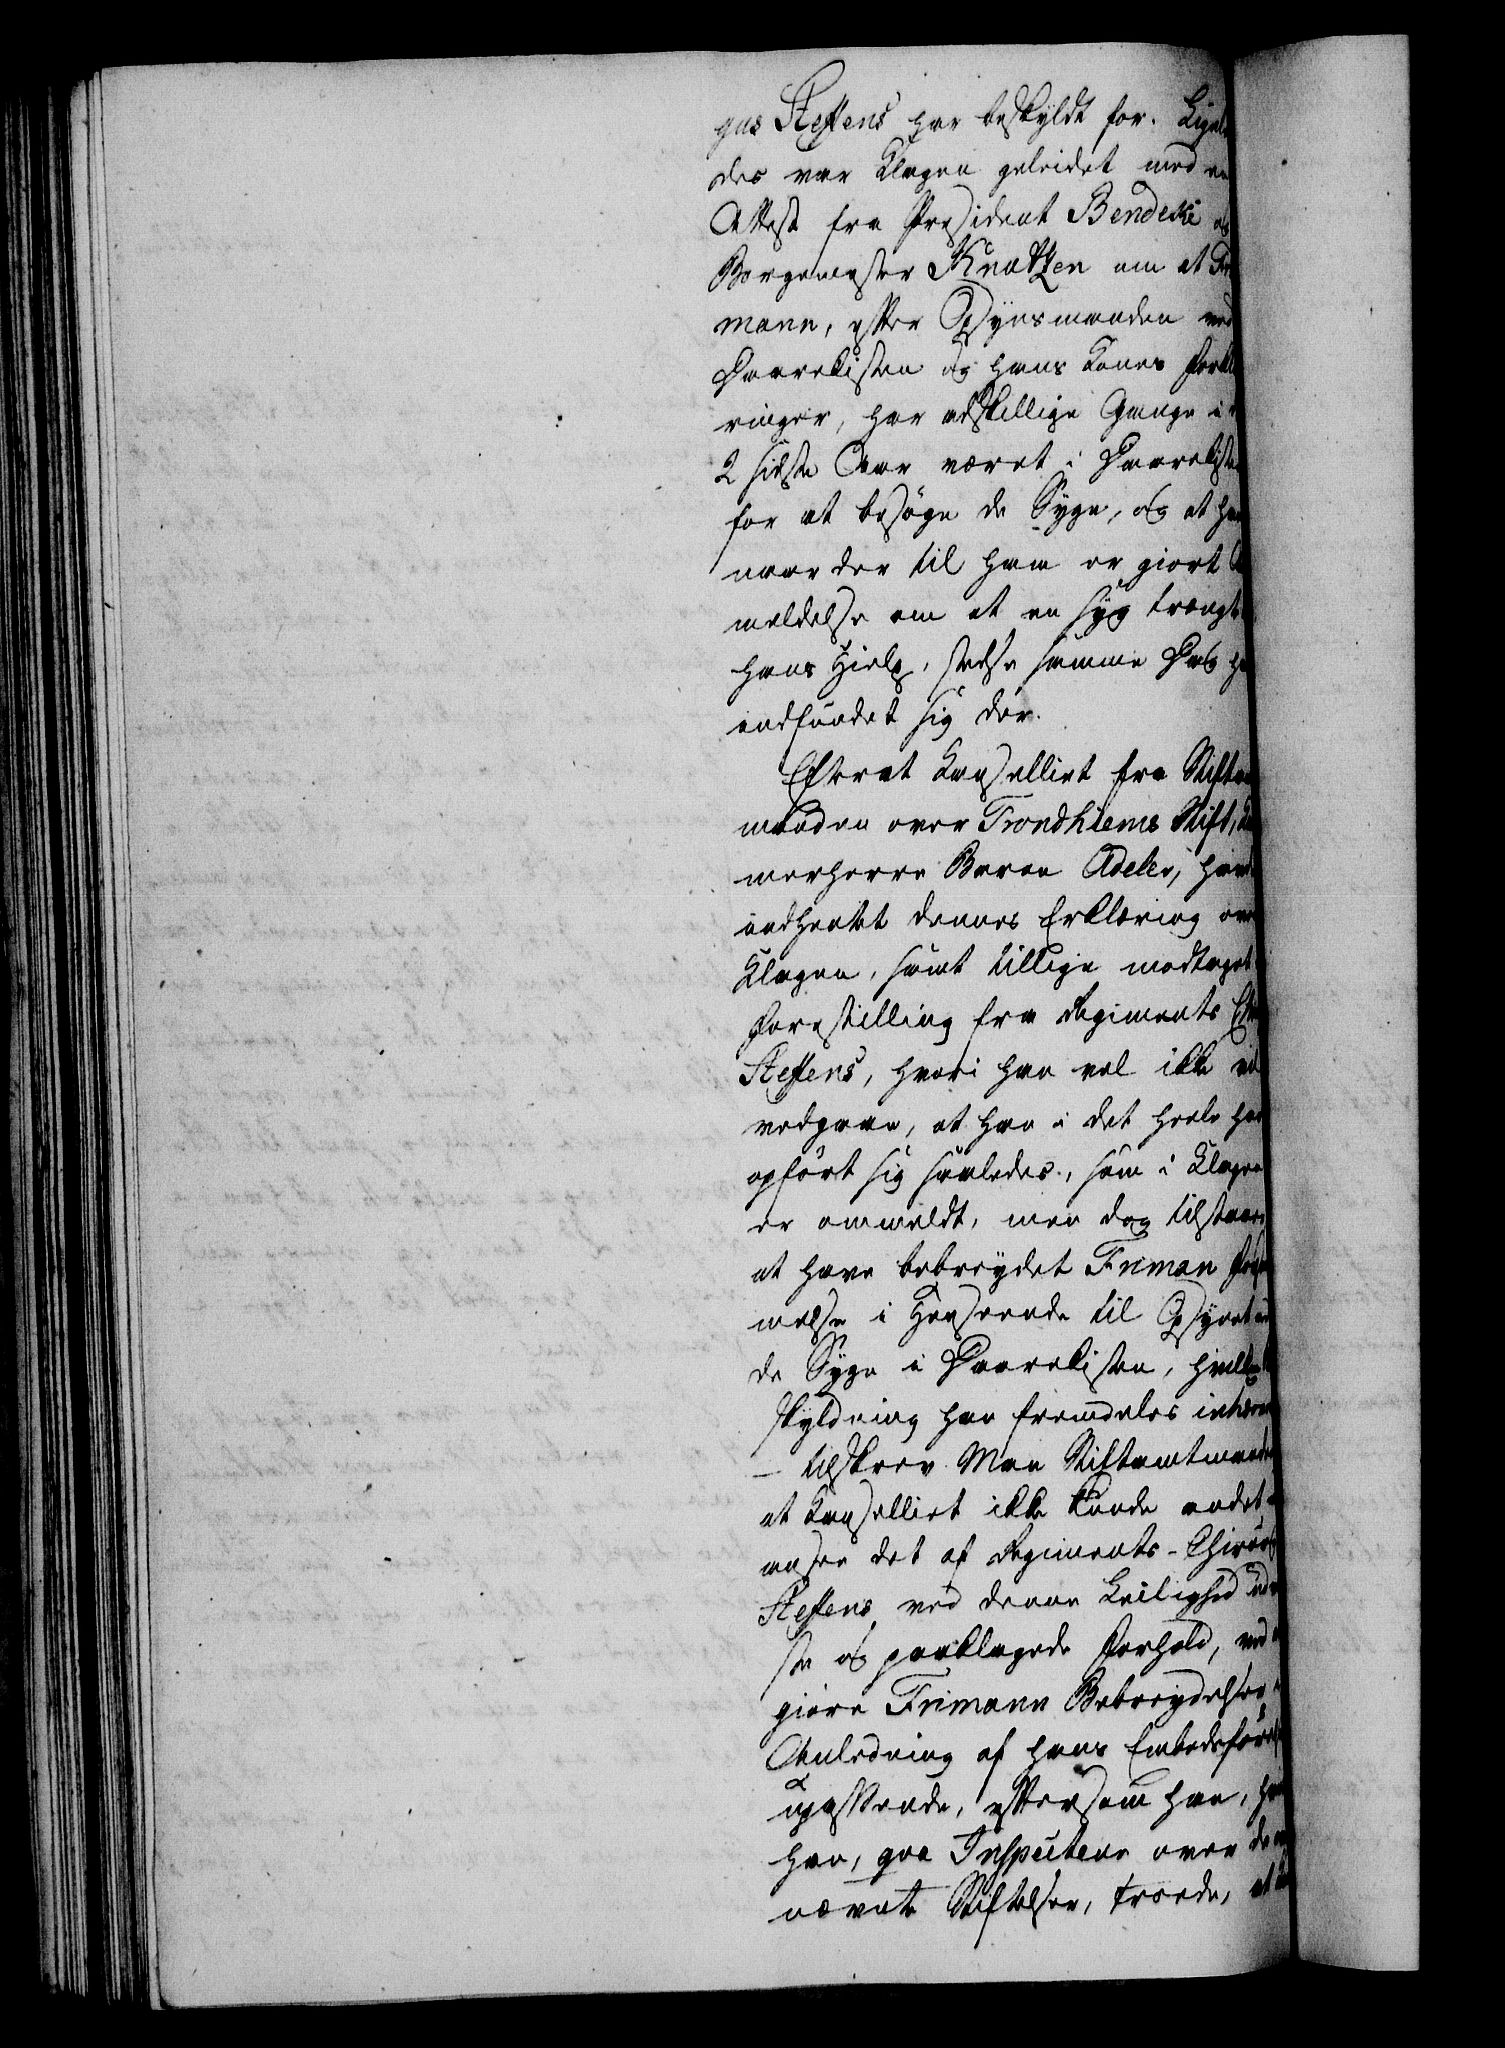 gus Steffens har beskyldt for. Ligele
des var Klagen geleidet med en
Attest fra President Bendeke og
Borgemester Knutzen om at Fri
mann, efter Opsynsmanden ved
Daarekisten og hans Kones Forkla
ringer, har adskillige Gange i
2 sidste Aar været i Daarekiste
for at besøge de Syge, og at han
naar der til ham er giort A
meldelse om at en syg trængte
hans Hielp, stedse samme Dag ha
indfundet sig der.
Efterat Kanselliet fra Stiftam
manden over Trondhiems Stift, Ka
merherre Baron Adeler, havde
indhentet dennes Erklæring over
Klagen, samt tillige modtaget
Forestilling fra Regiments Chi
Steffens, hvori han vel ikke vil
vedgaae, at han i det heele har
opført sig saaledes, som i Klagen
er ommeldt, men dog tilstaaer
at have bebreydet Friman Forsøm
melse i Henseende til Opsynet med
de Syge i Daarekisten, hvilken
skyldning han fremdeles inhærer
– tilskrev Man Stiftamtmanden
at Kanselliet ikke kunde andet
ansee det af Regiments-Chirurg
Steffens ved denne Leilighed udvi
ste og paaklagede Forhold, ved
giøre Frimann Bebreydelser i
Anledning af hans Embedsførelse
upassende, eftersom han, hvis
han, qva Inspecteur over de
nævnte Stiftelser, troede, at